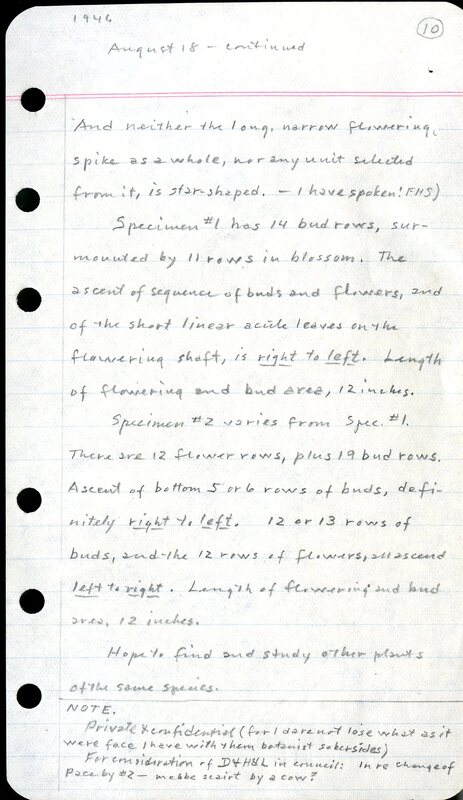 1946
10
August 18 - continued
And neither the long, narrow flowering,
spike as a whole, nor any unit selected
from it, is star-shaped. - I have spoken! FHS)
Specimen #1 has 14 bud rows, sur-
mounted by 11 rows in blossom. The
ascent of sequence of buds and flowers, and
of the short linear acute leaves on the
flowering shaft, is right to left. Length
of flowering and bud area, 12 inches.
Specimen #2 varies from Spec. #1.
There are 12 flower rows, plus 19 bud rows.
Ascent of bottom 5 or 6 rows of buds, defi-
nitely right to left. 12 or 13 rows of
buds, and the 12 rows of flowers, all ascend
left to right. Length of flowering and bud
area, 12 inches.
Hope to find and study other plants
of the same species.
NOTE.
Private & confidential (for I dare not lose what as it
were face I have with them botanist sobersides)
For consideration of D&H&L in council: In re change of
Pace by #2 - mebbe scairt by a cow?